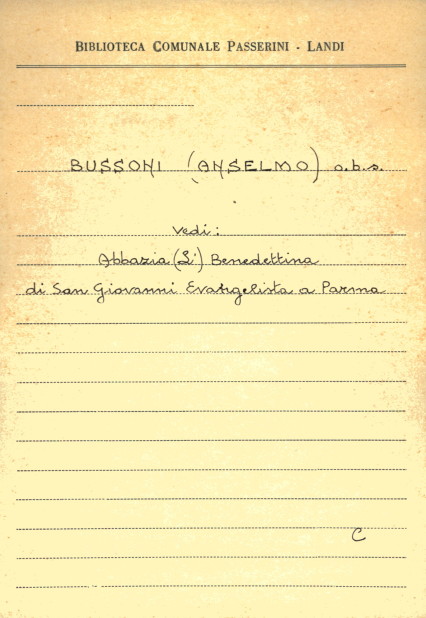 BIBLIOTECA COMUNALE PASSERINI - LANDI
BUSSONI (ANSELMO) o.b.s.
vedi:
Abbazia (L') Benedettina
di San Giovanni Evangelista a Parma
C